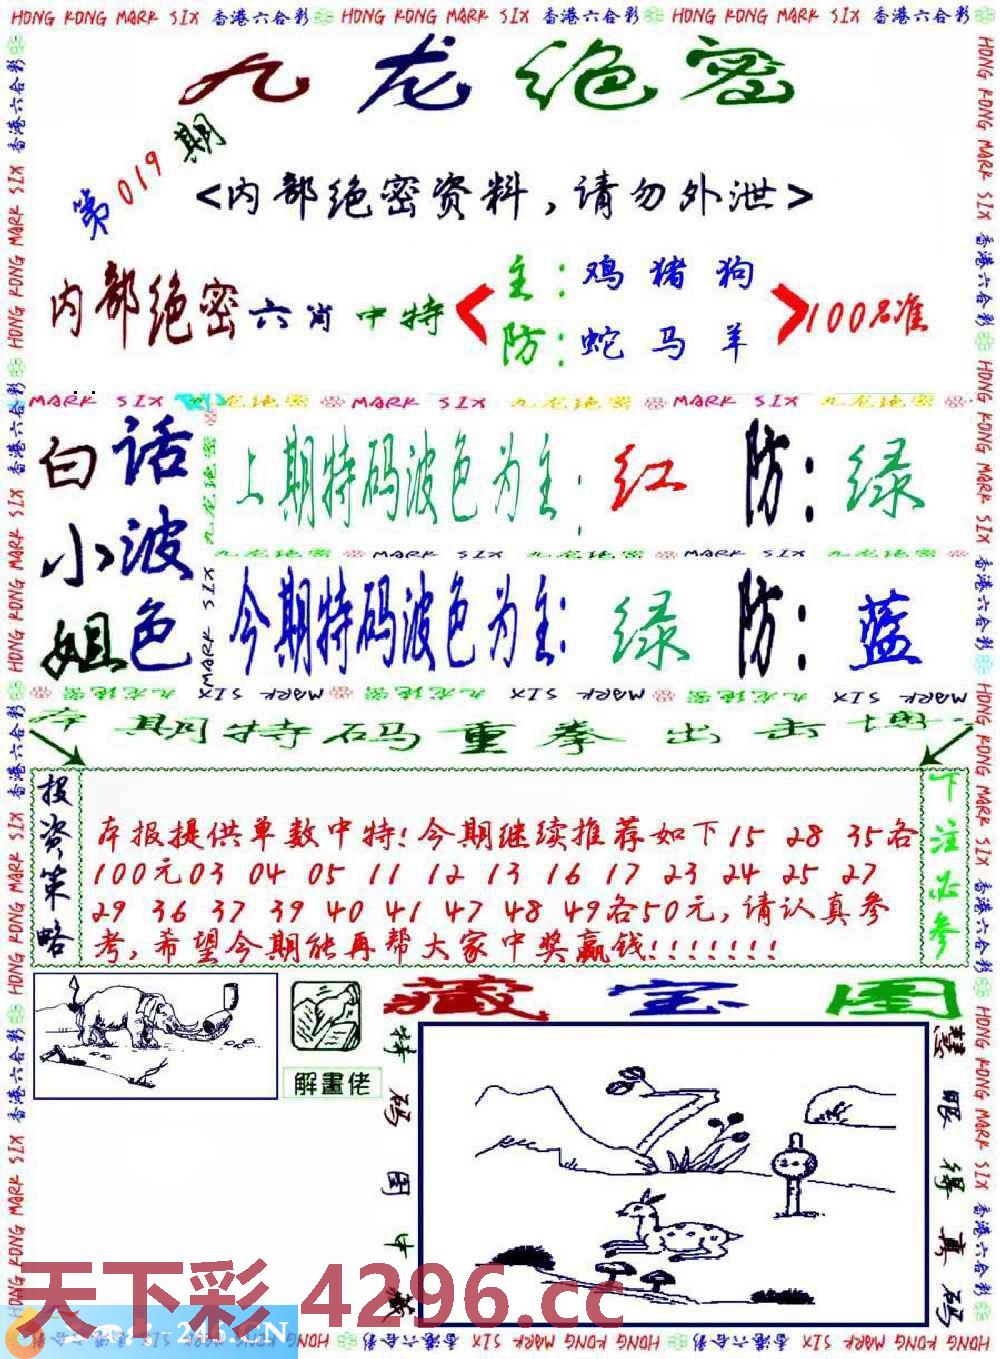 HONG KONG MARK SIX 香港六合彩 HONG KONG MARK SIX 香港六合彩 HONG KONG MARK SIX 香港六合彩
九龙绝密
第019期
<内部绝密资料,请勿外泄>
内部绝密六肖中特
主:鸡猪狗
防:蛇马羊
100%准
MARK SIX 九龙绝密 MARK SIX 九龙绝密 MARK SIX 九龙绝密
白小姐
话波色
上期特码波色为主:红 防:绿
九龙绝密 MARK SIX 九龙绝密 MARK SIX 九龙绝密
今期特码波色为主:绿 防:蓝
本期特码重拳出击
投资策略
本报提供单数中特!今期继续推荐如下15 28 35各
100元03 04 05 11 12 13 16 17 23 24 25 27
29 36 37 39 40 41 47 48 49各50元,请认真参
考,希望今期能再帮大家中奖赢钱!!!!!!!
下注必参
解畫佬
藏宝图
特码图中藏
慧眼得真码
天下彩 4296.cc
246.CN